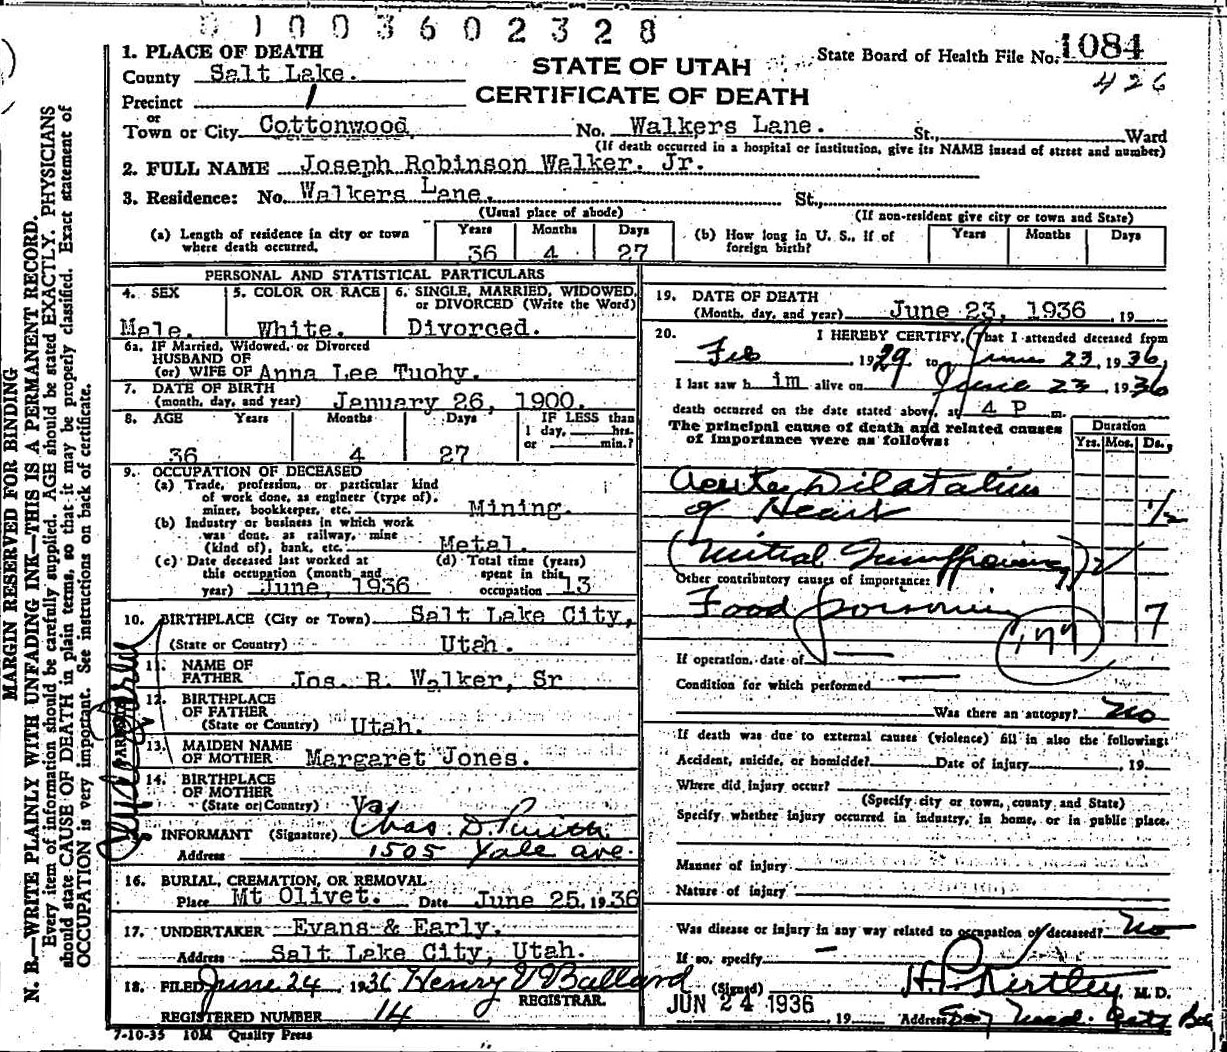 0 1 0 0 3 6 0 2 3 2 8
1. PLACE OF DEATH
County Salt Lake.
Precinct 1
or
Town or City Cottonwood
STATE OF UTAH
CERTIFICATE OF DEATH
State Board of Health File No. 1084
426
No. Walkers Lane. St., Ward
(If death occurred in a hospital or institution, give its NAME instead of street and number)
2. FULL NAME Joseph Robinson Walker. Jr.
3. Residence: No. Walkers Lane. St.,
(Usual place of abode)
(If non-resident give city or town and State)
(a) Length of residence in city or town where death occurred.
Years Months Days
36 4 27
(b) How long in U. S., if of foreign birth?
Years Months Days
PERSONAL AND STATISTICAL PARTICULARS
4. SEX 5. COLOR OR RACE 6. SINGLE, MARRIED, WIDOWED, or DIVORCED (Write the Word)
Male. White. Divorced.
6a. IF Married, Widowed, or Divorced
HUSBAND OF
(or) WIFE OF Anna Lee Tuohy.
7. DATE OF BIRTH
(month, day, and year) January 26, 1900.
8. AGE Years Months Days IF LESS than
1 day, hrs.
or min.?
36 4 27
9. OCCUPATION OF DECEASED
(a) Trade, profession, or particular kind
of work done, as engineer (type of),
miner, bookkeeper, etc. Mining.
(b) Industry or business in which work
was done, as railway, mine
(kind of), bank, etc. Metal.
(c) Date deceased last worked at
this occupation (month and
year) June, 1936
(d) Total time (years)
spent in this
occupation 13
10. BIRTHPLACE (City or Town) Salt Lake City,
(State or Country) Utah.
PARENTS
11. NAME OF
FATHER Jos. R. Walker, Sr
12. BIRTHPLACE
OF FATHER
(State or Country) Utah.
13. MAIDEN NAME
OF MOTHER Margaret Jones.
14. BIRTHPLACE
OF MOTHER
(State or Country) Va.
INFORMANT (Signature) Chas. D.
Address 1505 Yale ave.
16. BURIAL, CREMATION, OR REMOVAL
Place Mt Olivet. Date June 25, 1936
17. UNDERTAKER Evans & Early.
Address Salt Lake City, Utah.
18. FILED June 24 1936 Henry V Ballard
REGISTRAR.
REGISTERED NUMBER 14
7-10-35 10M Quality Press
19. DATE OF DEATH
(Month, day, and year) June 23, 1936 , 19
20. I HEREBY CERTIFY, That I attended deceased from
Feb 1929 to June 23, 1936,
I last saw h im alive on June 23, 1936
death occurred on the date stated above, at 4 P m.
The principal cause of death and related causes
of importance were as follows:
Duration
Yrs. Mos. Ds.
Acute Dilatation
of Heart 1/2
(Mitral Insufficiency)
Other contributory causes of importance:
Food poisoning 7
177
If operation, date of
Condition for which performed
Was there an autopsy? No
If death was due to external causes (violence) fill in also the following:
Accident, suicide, or homicide? Date of injury , 19
Where did injury occur?
(Specify city or town, county and State)
Specify whether injury occurred in industry, in home, or in public place.
Manner of injury
Nature of injury
Was disease or injury in any way related to occupation of deceased? No
If so, specify
(Signed) H. P. Kirtley, M. D.
JUN 24 1936
, 19 Address
MARGIN RESERVED FOR BINDING
N. B.—WRITE PLAINLY WITH UNFADING INK—THIS IS A PERMANENT RECORD.
Every item of information should be carefully supplied. AGE should be stated EXACTLY. PHYSICIANS
should state CAUSE OF DEATH in plain terms, so that it may be properly classified. Exact statement of
OCCUPATION is very important. See instructions on back of certificate.